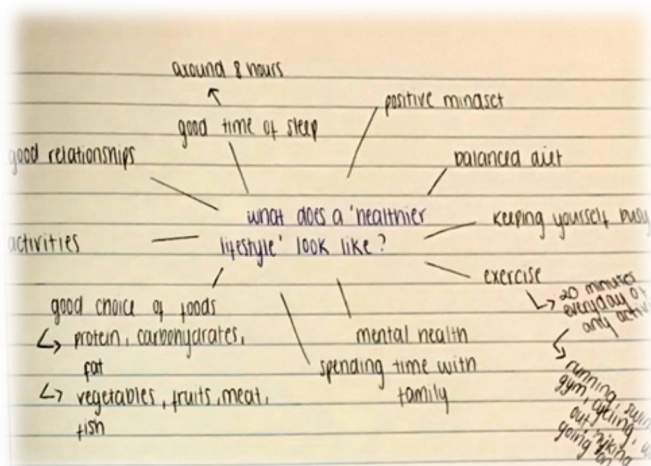 around 8 hours
good time of sleep
positive mindset
good relationships
balanced diet
what does a 'healthier
lifestyle' look like?
keeping yourself busy
activities
exercise
20 minutes
everyday of
any
running,
gym, cycling,
out, hiking
going on
good choice of foods
protein, carbohydrates,
fat
vegetables, fruits, meat,
fish
mental health
spending time with
family